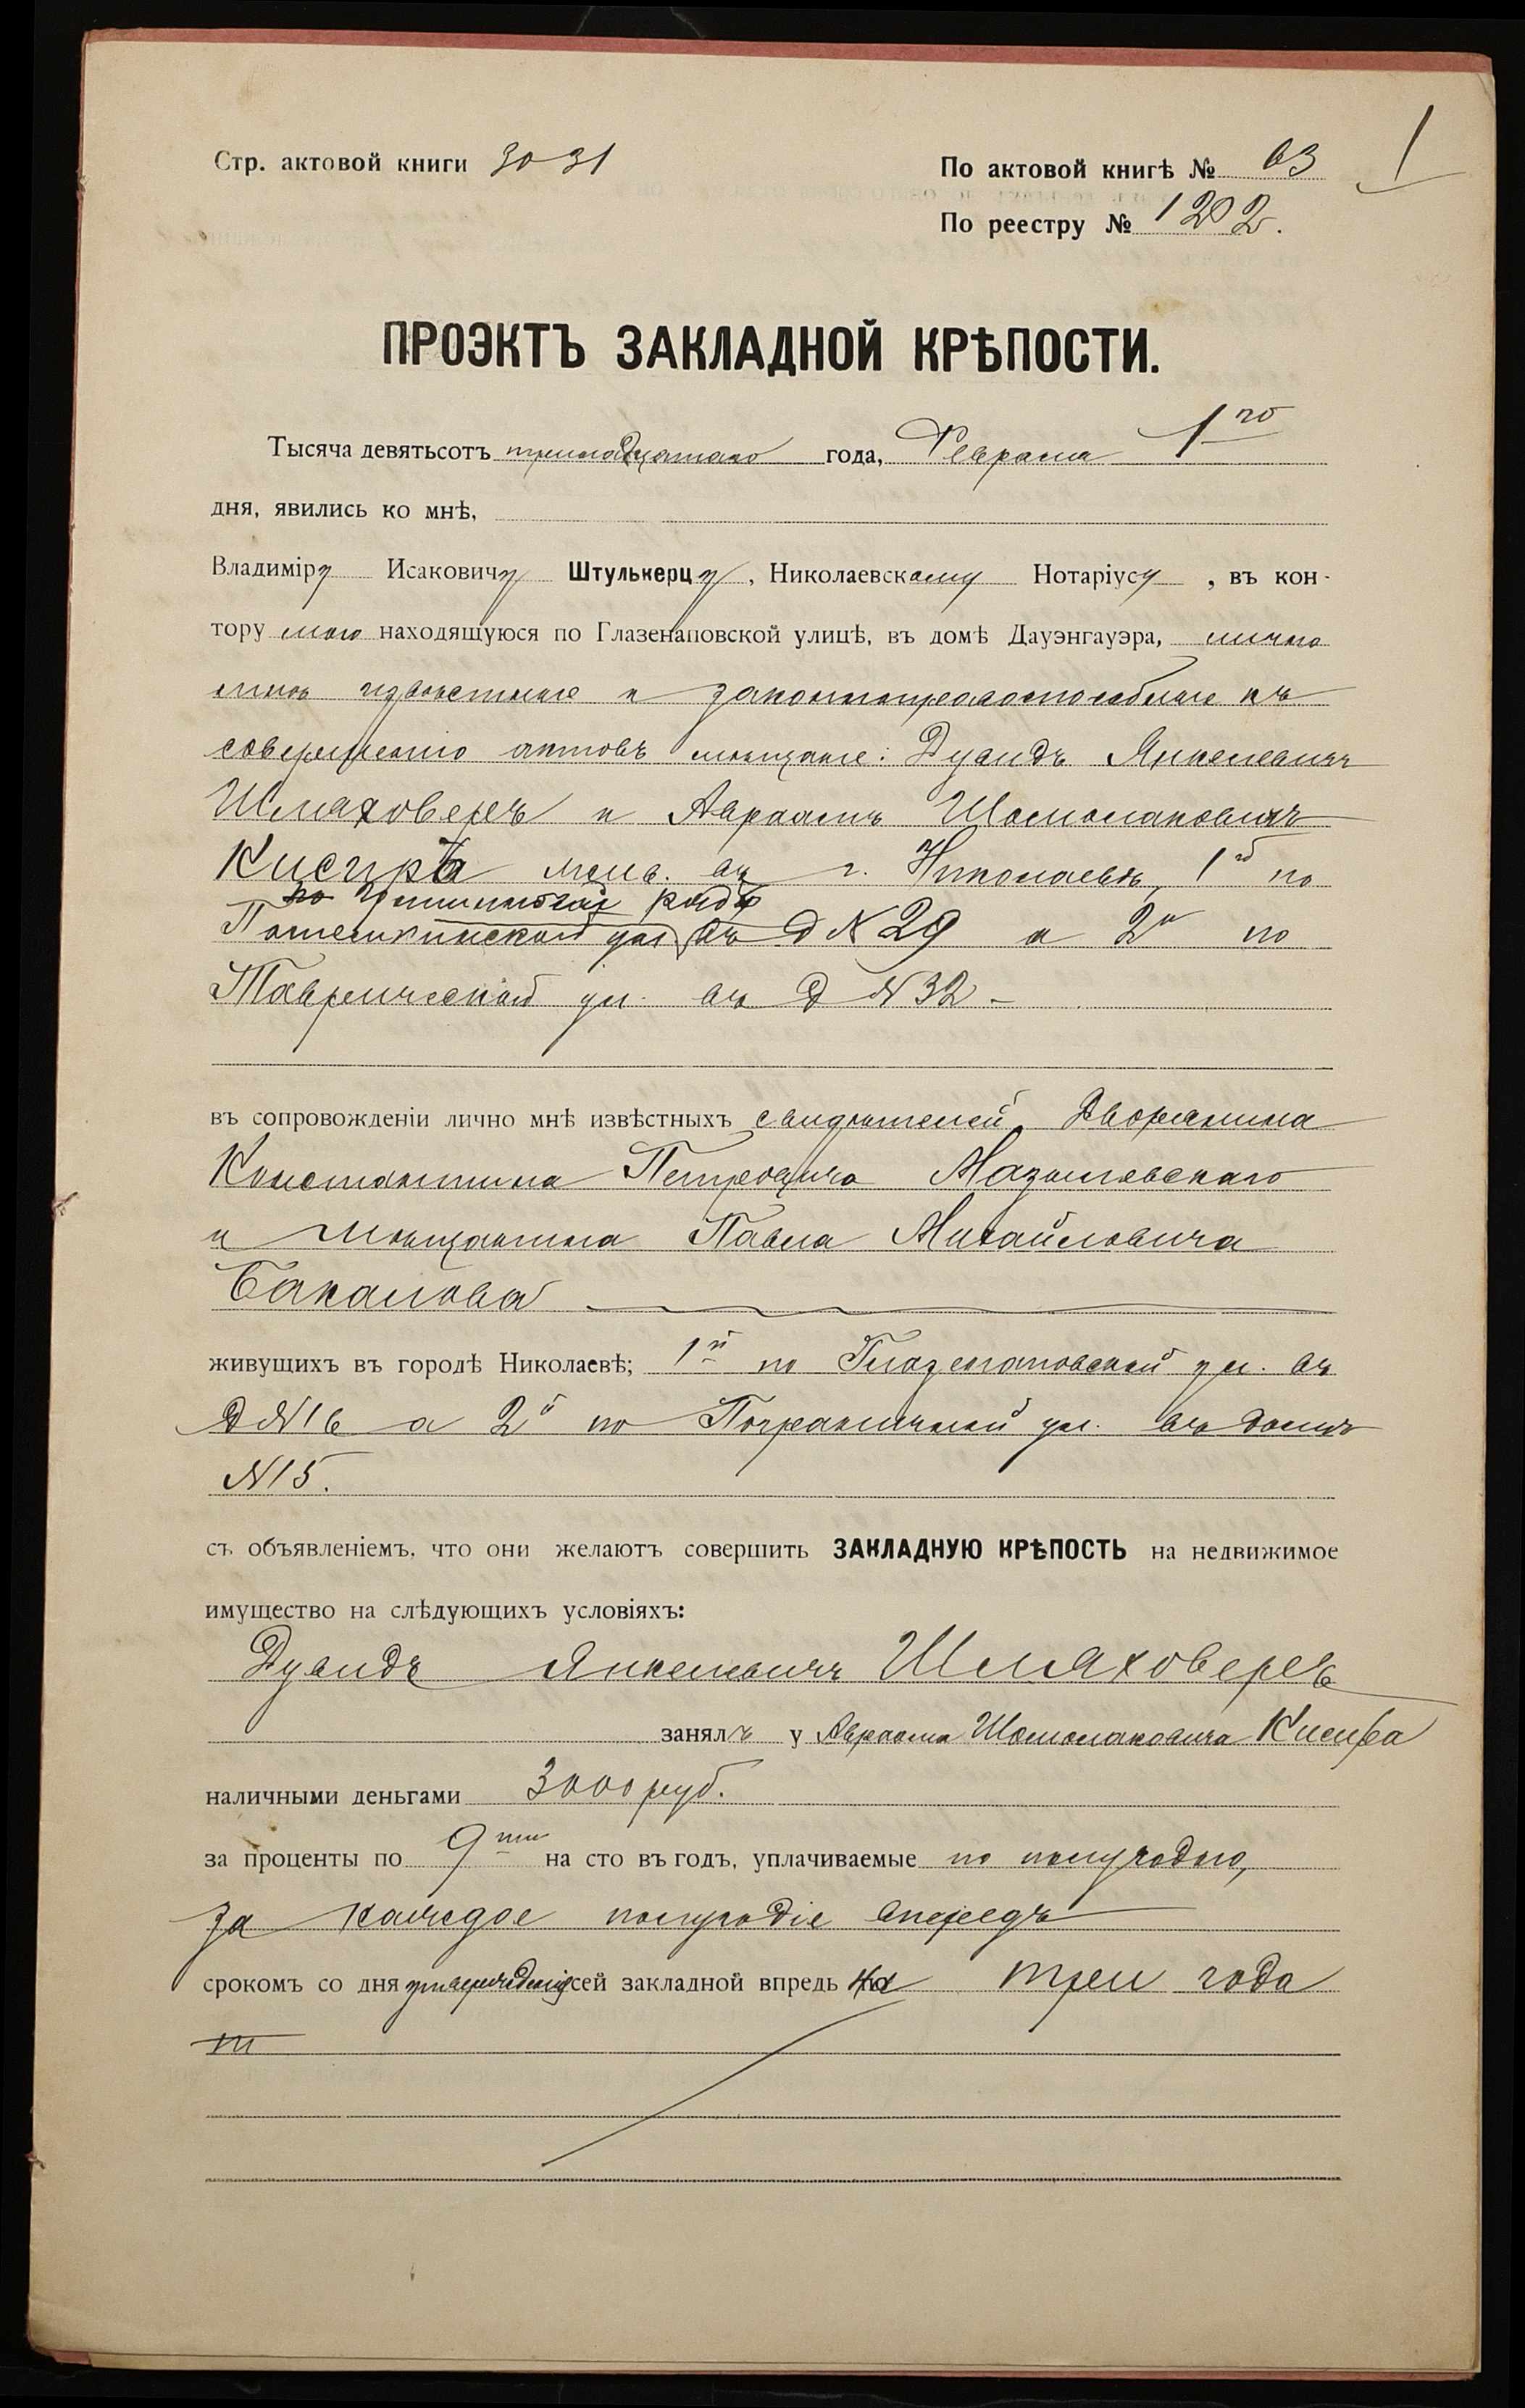 Стр. актовой книги 30-31
По актовой книгѣ № 63
1
По реестру № 1202.
ПРОЭКТЪ ЗАКЛАДНОЙ КРѢПОСТИ.
Тысяча девятьсотъ тринадцатаго года, Февраля 1го
дня, явились ко мнѣ,
Владиміру Исаковичу Штулькерцу, Николаевскому Нотаріусу, въ кон-
тору мою находящуюся по Глазенаповской улицѣ, въ домѣ Дауэнгауэра, лично
мнѣ извѣстные и законноправоспособные къ
совершенію актовъ мѣщане: Дувидъ Янкелевичъ
Шмяховеръ и Авраамъ Шоломаковичъ
въ г. Николаевѣ, 1й по
Потемкинской ул. въ д №29 а 2й по
Таврической ул. въ д №32 -
въ сопровожденіи лично мнѣ извѣстныхъ свидѣтелей, Дворянина
Константина Петровича
и мѣщанина Павла Михайловича
Бакалова
живущихъ въ городѣ Николаевѣ; 1й по Глазенаповской ул. въ
д №16 а 2й по Пограничной ул. въ домѣ
№15.
съ объявленіемъ, что они желаютъ совершить ЗАКЛАДНУЮ КРѢПОСТЬ на недвижимое
имущество на слѣдующихъ условіяхъ:
Дувидъ Янкелевичъ Шмяховеръ
занялъ у Авраама Шоломаковича
наличными деньгами 3000 руб.
за проценты по 9ти на сто въ годъ, уплачиваемые по полугодно,
за каждое полугодіе впередъ
срокомъ со дня утвержденія сей закладной впредь на три года